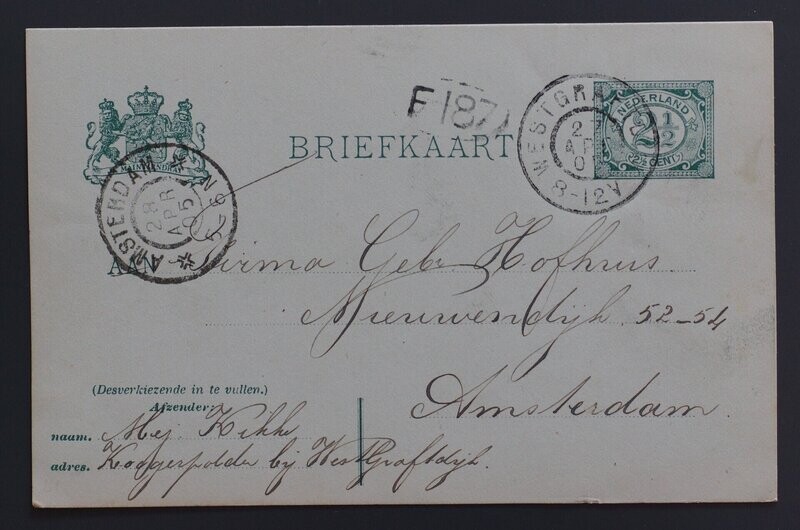 F 187
BRIEFKAART
NEDERLAND
2½
(2½ CENT)
WESTGRA
2
AP
0
8-12V
AMSTERDAM
28
APR
05
5-6 N
AAN Firma Geb Hofhuis
Nieuwendijk 52-54
Amsterdam.
(Desverkiezende in te vullen.)
Afzender:
naam. Mej Kikke
adres. Kaagerpolder bij WestGraftdijk.